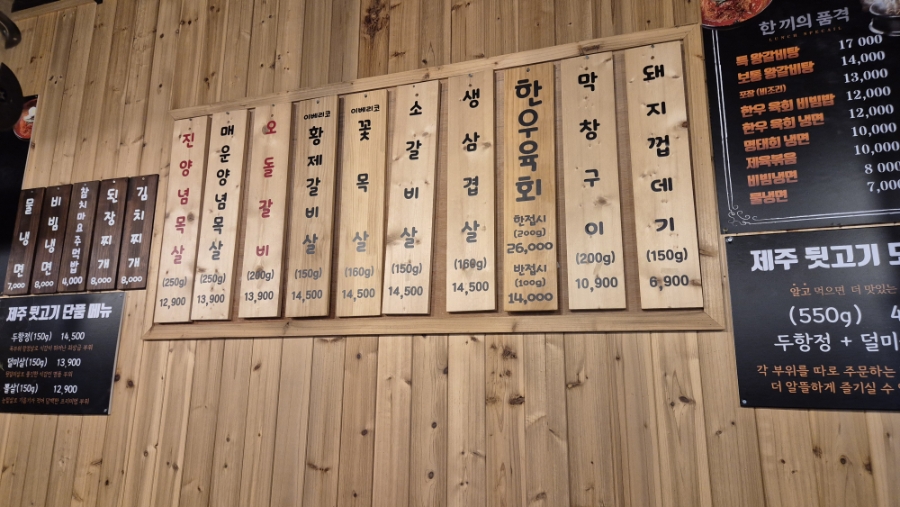 물냉면
7,000
비빔냉면
8,000
참치마요주먹밥
4,000
된장찌개
8,000
김치찌개
8,000
제주 뒷고기 단품 메뉴
두항정(150g) 14,500
덜미살(150g) 13,900
뽈살(150g) 12,900
진양념목살
(250g)
12,900
매운양념목살
(250g)
13,900
오돌갈비
(200g)
13,900
이베리코
황제갈비살
(150g)
14,500
이베리코
꽃목살
(160g)
14,500
소갈비살
(150g)
14,500
생삼겹살
(160g)
14,500
한우육회
한접시
(200g)
26,000
반접시
(100g)
14,000
막창구이
(200g)
10,900
돼지껍데기
(150g)
6,900
한 끼의 품격
LUNCH SPECIAL
특 왕갈비탕 17 000
보통 왕갈비탕 14,000
포장 (비조리) 13,000
한우 육회 비빔밥 12,000
한우 육회 냉면 12,000
명태회 냉면 10,000
제육볶음 10,000
비빔냉면 8 000
물냉면 7,000
제주 뒷고기
알고 먹으면 더 맛있는
(550g) 4
두항정 + 덜미
각 부위를 따로 주문하는
더 알뜰하게 즐기실 수